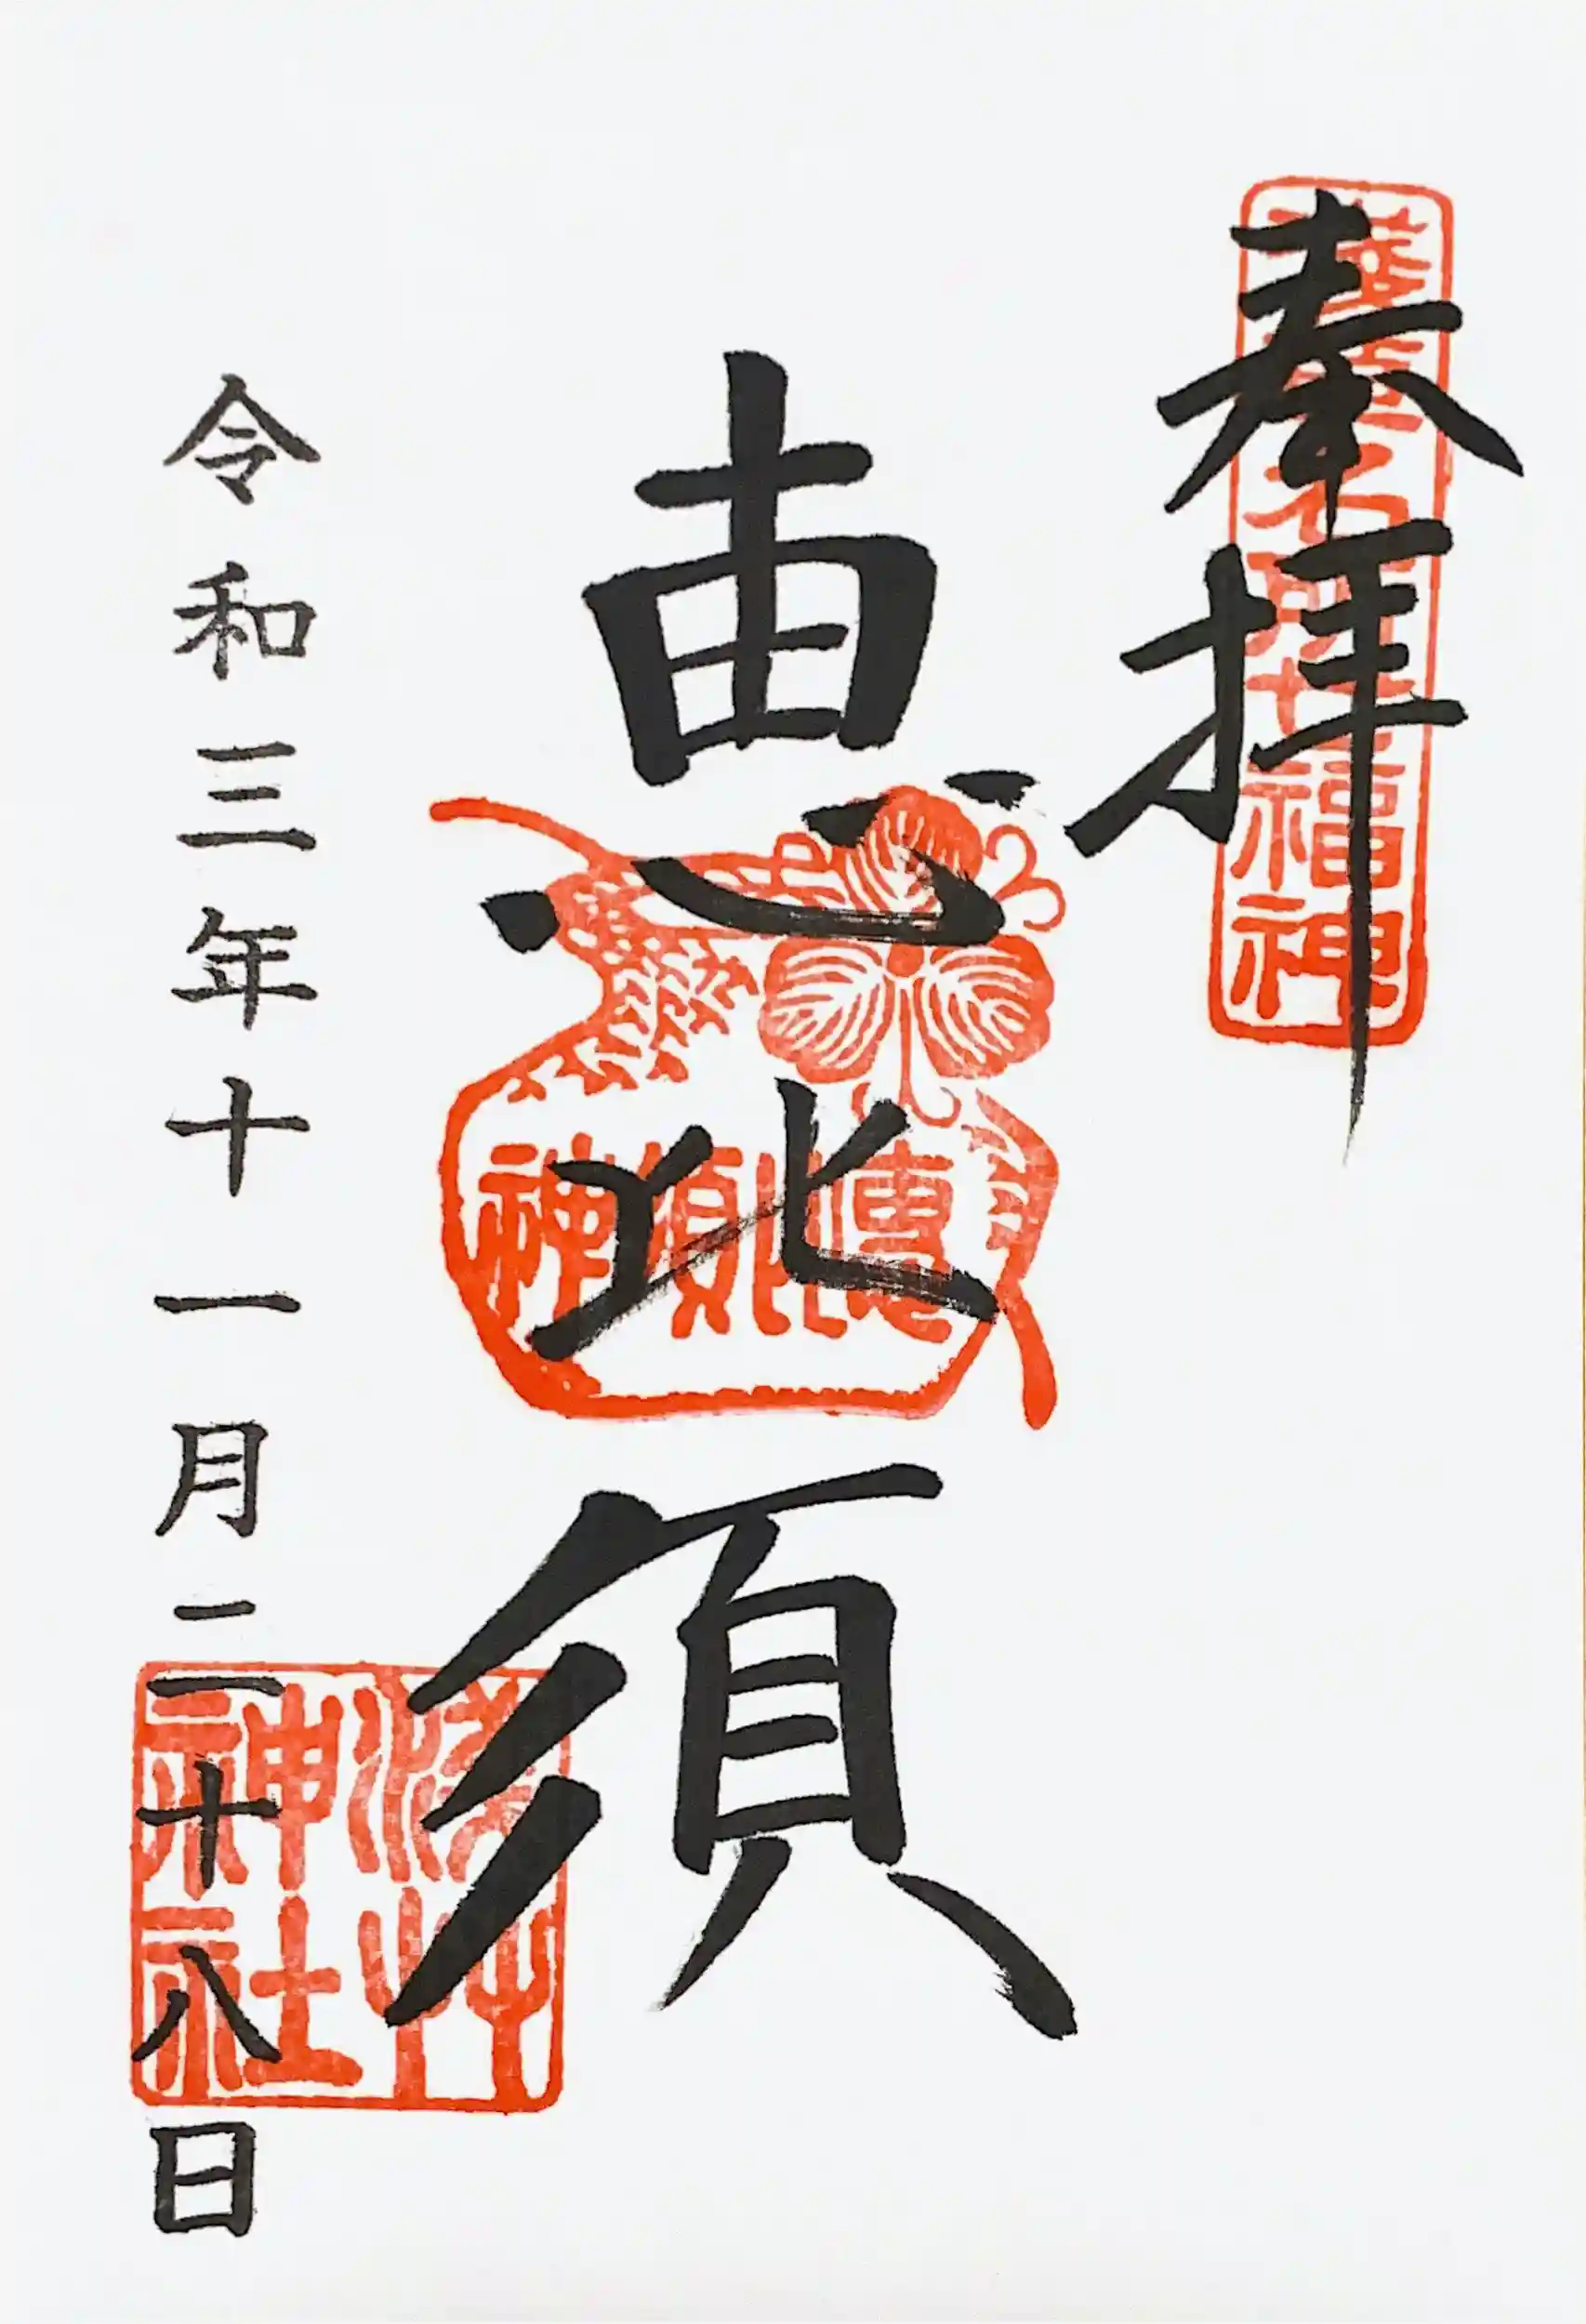 奉拝
浅草名所七福神
恵比須
恵比須神
浅草神社
令和三年十一月二十八日